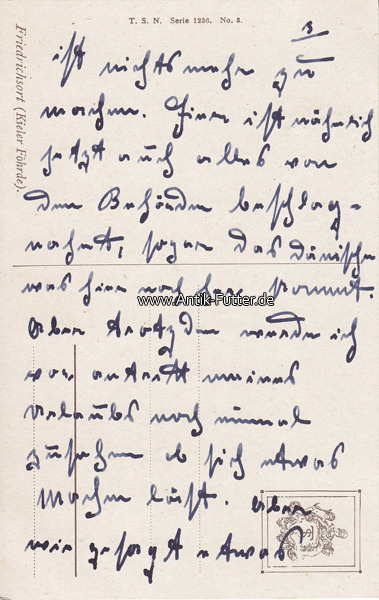 T. S. N. Serie 1236. No. 3.
Friedrichsort (Kieler Föhrde).
3
ist nichts mehr zu
machen. Hier ist nähmlich
jetzt auch alles von
den Behörden beschlag-
nahmt, sogar das dänische
was hier noch her kommt.
www.Antik-Futter.de
Aber trotzdem werde ich
vor antritt meines
Urlaubs noch einmal
zusehen ob sich etwas
machen läust. Aber
wie gesagt etwas